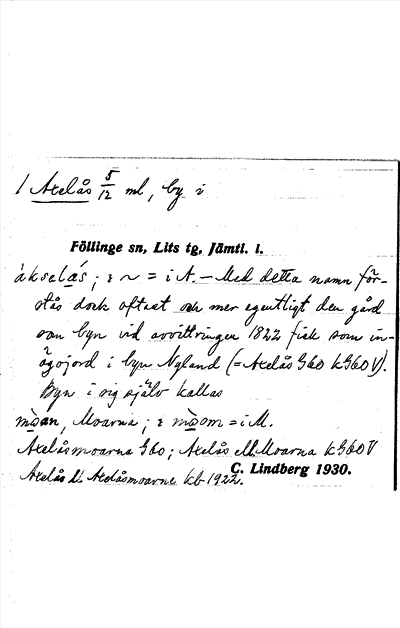 1 Axelås 5/12 ml, by i
Föllinge sn, Lits tg, Jämtl. l.
àkselás; i ~ = i A. – Med detta namn för-
stås dock oftast och mer egentligt den gård
som byn vid avvittringen 1822 fick som in-
ägojord i byn Nyland (= Axelås G60 kG60V).
Byn i sig själv kallas
mòan, Moarna; i mòom = i M.
Axelåsmoarna G60; Axelås ell. Moarna kG60V
Axelås l. Axelåsmoarne kb 1922.
C. Lindberg 1930.